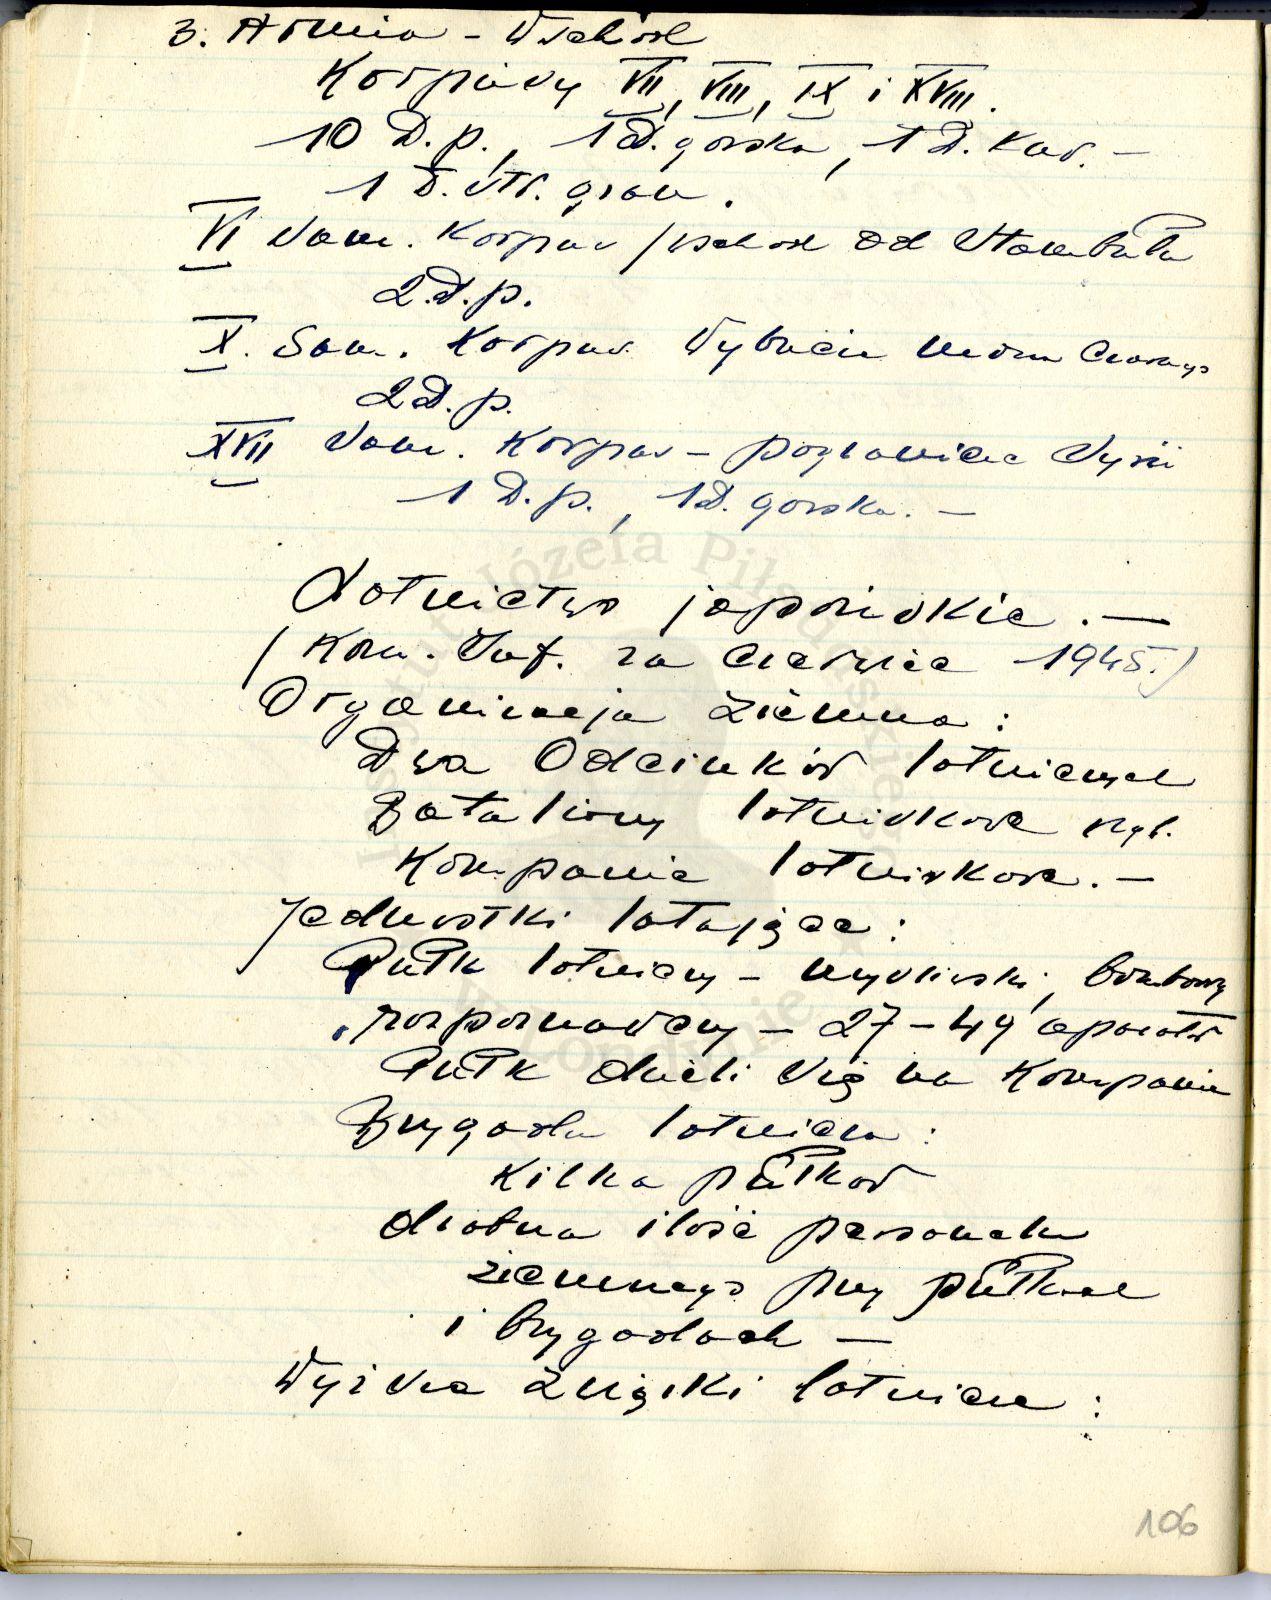 3. Armia – Wschód
Korpusy VII, VIII, IX i XVIII.
10 D.p., 1 D. górska, 1 D. Kaw. –
1 D. str. gran.
VI Sam. Korpus /wschód od Stambułu
2 D.p.
X. Sam. Korpus Wybrzeże morza Czarnego
2 D.p.
XVII Sam. Korpus – pogranicze Syrii
1 D.p., 1 D. górska. –
Lotnictwo japońskie. –
/ Kom. Inf. za Czerwiec 1945./
Organizacja ziemna:
Dwa Odcinków lotniczych
Bataliony lotniskowe wzgl.
Kompanie lotniskowe. –
Jednostki latające:
Pułk lotniczy – myśliwski, bombowy
, rozpoznawczy – 27 – 49 aparatów
Pułk dzieli się na Kompanie
Brygada lotnicza:
Kilka pułków
drobna ilość personelu
ziemnego przy pułkach
i brygadach –
Wyższe związki lotnicze:
106
Instytut Józefa Piłsudskiego
w Londynie